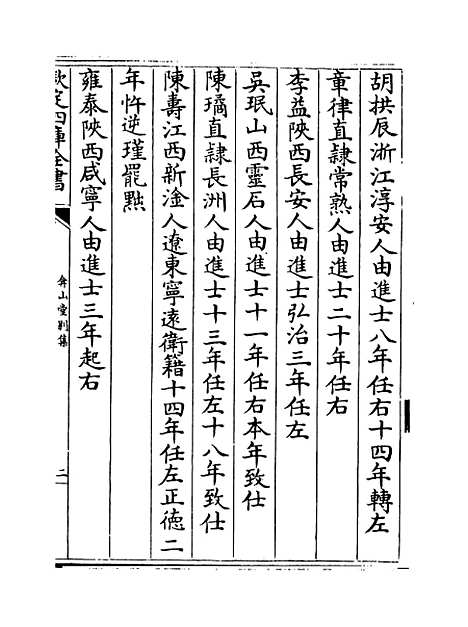 胡拱辰浙江淳安人由進士八年任右十四年轉左
章律直隸常熟人由進士二十年任右
李益陝西長安人由進士弘治三年任左
吳珉山西靈石人由進士十一年任右本年致仕
陳璚直隸長洲人由進士十三年任左十八年致仕
陳壽江西新淦人遼東寧遠衛籍十四年任左正德二
年忤逆瑾罷黜
雍泰陝西咸寧人由進士三年起右
欽定四庫全書
弇山堂别集